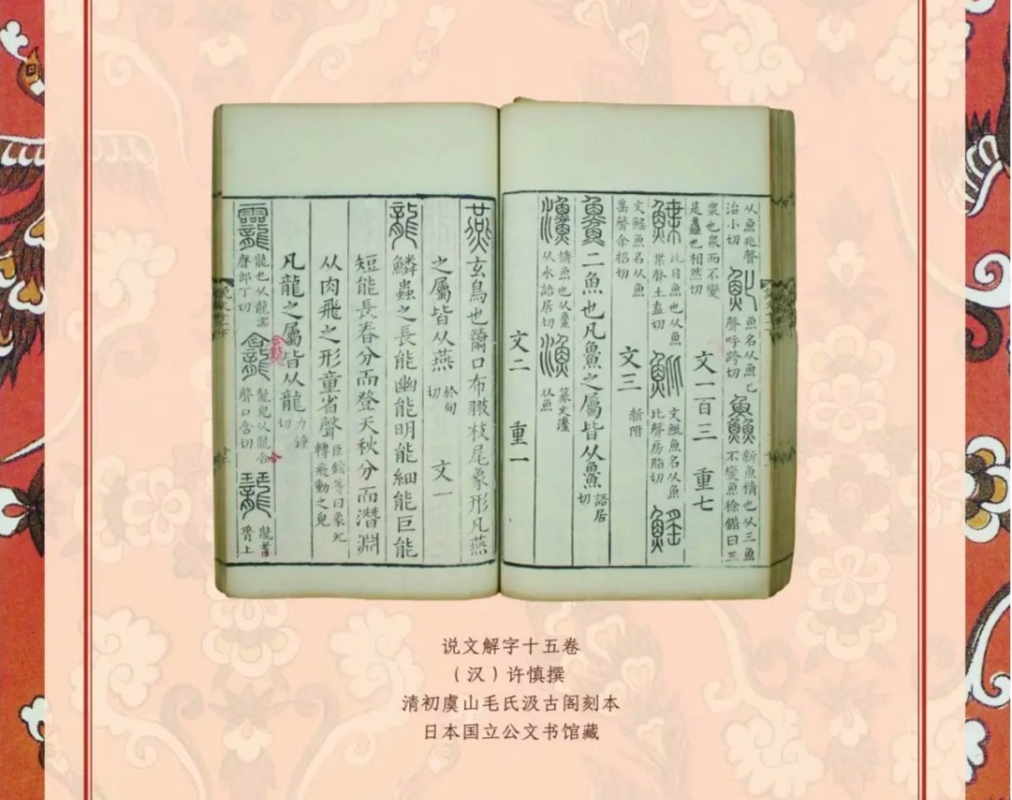 从魚兆聲治小切 魤 魚名从魚匕聲呼跨切 鱻 新魚精也从三魚不變魚徐鍇曰三
衆也衆而不變是鱻也相然切 文一百三 重七
鰈 比目魚也从魚枼聲土盍切 魮 文魮魚名从魚比聲房脂切 鰩
文鰩魚名从魚䍃聲余招切 文三 新附
𩺰 二魚也凡𩺰之屬皆从𩺰 語居切
𤅱 捕魚也从𩺰从水語居切 漁 篆文𤅱从魚
文二 重一
燕 玄鳥也籋口布翄枝尾象形凡燕
之屬皆从燕 於甸切 文一
龍 鱗蟲之長能幽能明能細能巨能
短能長春分而登天秋分而潛淵
从肉飛之形童省聲 臣鉉等曰象夗轉飛動之皃
凡龍之屬皆从龍 力鍾切
龗 龍也从龍霝聲郎丁切 龕 龍皃从龍合聲口含切 䶬 龍耆脊上
说文解字十五卷
（汉）许慎撰
清初虞山毛氏汲古阁刻本
日本国立公文书馆藏